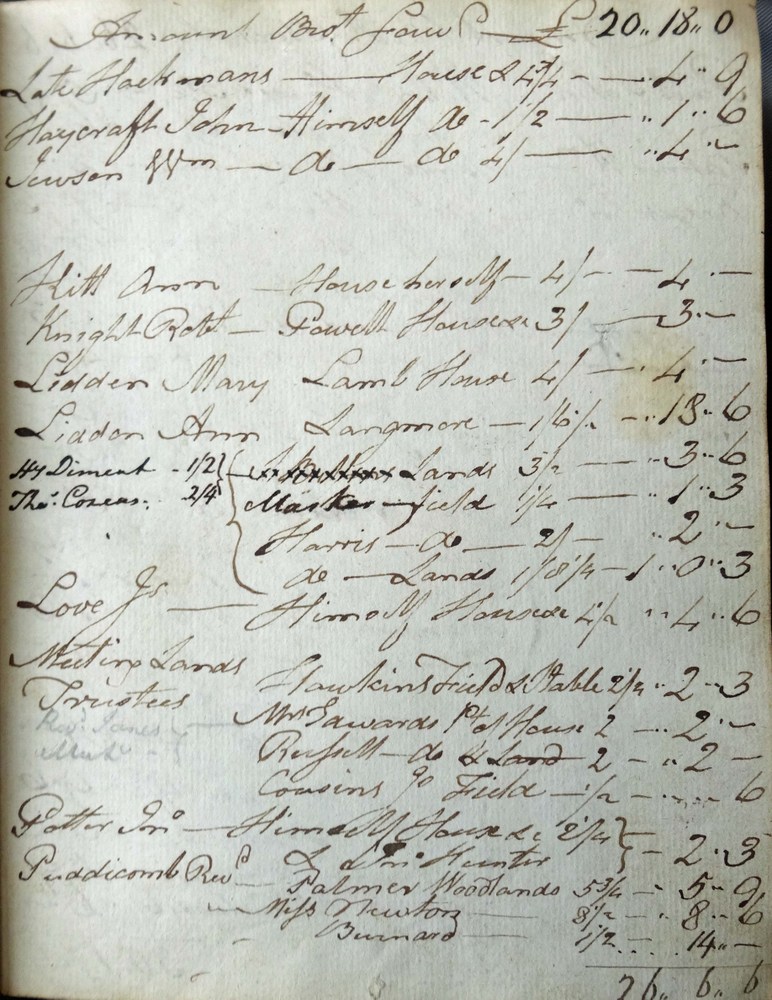 Amount Brot forwd £ 20.. 18.. 0
Late Hackmans — House & 4 3/4 — .. 4 .. 9
Haycraft John Himself do - 1 1/2 — .. 1 .. 6
Jewson Wm — do — do 4/ — .. 4 .. —
Kitt Ann — House herself — 4/ — 4 . —
Knight Robt — Powell House &c 3/ — 3 .. —
Lidden Mary Lamb House 4/ — .. 4 .. —
Liddon Ann Langmore — 18/6 — .. 18 .. 6
Hy Diment - 1/2 } Lands 3/2 — .. 3 .. 6
Thos. Cozens. 2/4 Master — field 1/4 — .. 1 .. 3
Harris — do — 2/ — .. 2 .. —
do — Lands — 1 .. 0 .. 3
Love Js — Himself House &c 4/2 .. 4 .. 6
Meeting Lands
Trustees Hawkins Field & Stable 2/4 .. 2 .. 3
Mrs Edwards Pt of House 2 — .. 2 .. —
Revd. James
Russell — do & Land — 2 — .. 2 —
Cousins Field — 1/2 — 6
Potter Jno — Himself House &c 2/4 } — 2 .. 3
& Hunter
Puddicomb Revd — Palmer Woodlands 5 3/4 — .. 5 .. 9
Miss Newton — 8 1/2 — .. 8 .. 6
Burnard — 1/2 .... 14 .. —
26 .. 6 .. 6